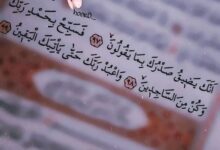 أَنَّكَ يَضِيقُ صَدْرُكَ بِمَا يَقُولُونَ ٩٧ فَسَبِّحْ بِحَمْدِ رَبِّكَ
وَكُن مِّنَ السَّاجِدِينَ ٩٨ وَاعْبُدْ رَبَّكَ حَتَّىٰ يَأْتِيَكَ الْيَقِينُ